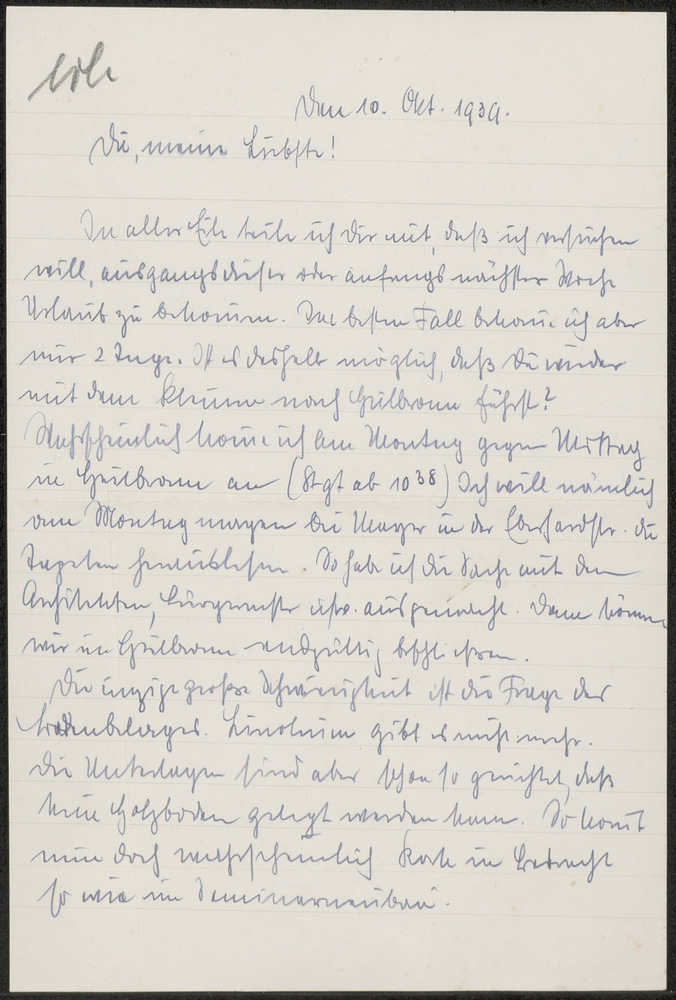 Den 10. Okt. 1939.
Du, meine Liebste!
In aller Eile teile ich Dir mit, daß ich versuchen
will, ausgangs dieser oder anfangs nächster Woche
Urlaub zu bekommen. Im besten Fall bekomme ich aber
nur 2 Tage. Ist es deshalb möglich, daß Du wieder
mit dem Kleinen nach Heilbronn fährst?
Wahrscheinlich komme ich am Montag gegen Mittag
in Heilbronn an (Stgt ab 10 38) Ich will nämlich
am Montag morgen bei Mayer in der Eberhardstr. die
Tapeten herauslesen. So habe ich die Sache mit dem
Architekten, Bürgermstr usw. ausgemacht. Dann können
wir in Heilbronn endgültig beschließen.
Die einzige große Schwierigkeit ist die Frage des
Bodenbelages. Linoleum gibt es nicht mehr.
Die Unterlagen sind aber schon so gerichtet, daß
kein Holzboden gelegt werden kann. So kommt
nun doch wahrscheinlich Kork in Betracht
so wie im Seminarneubau.